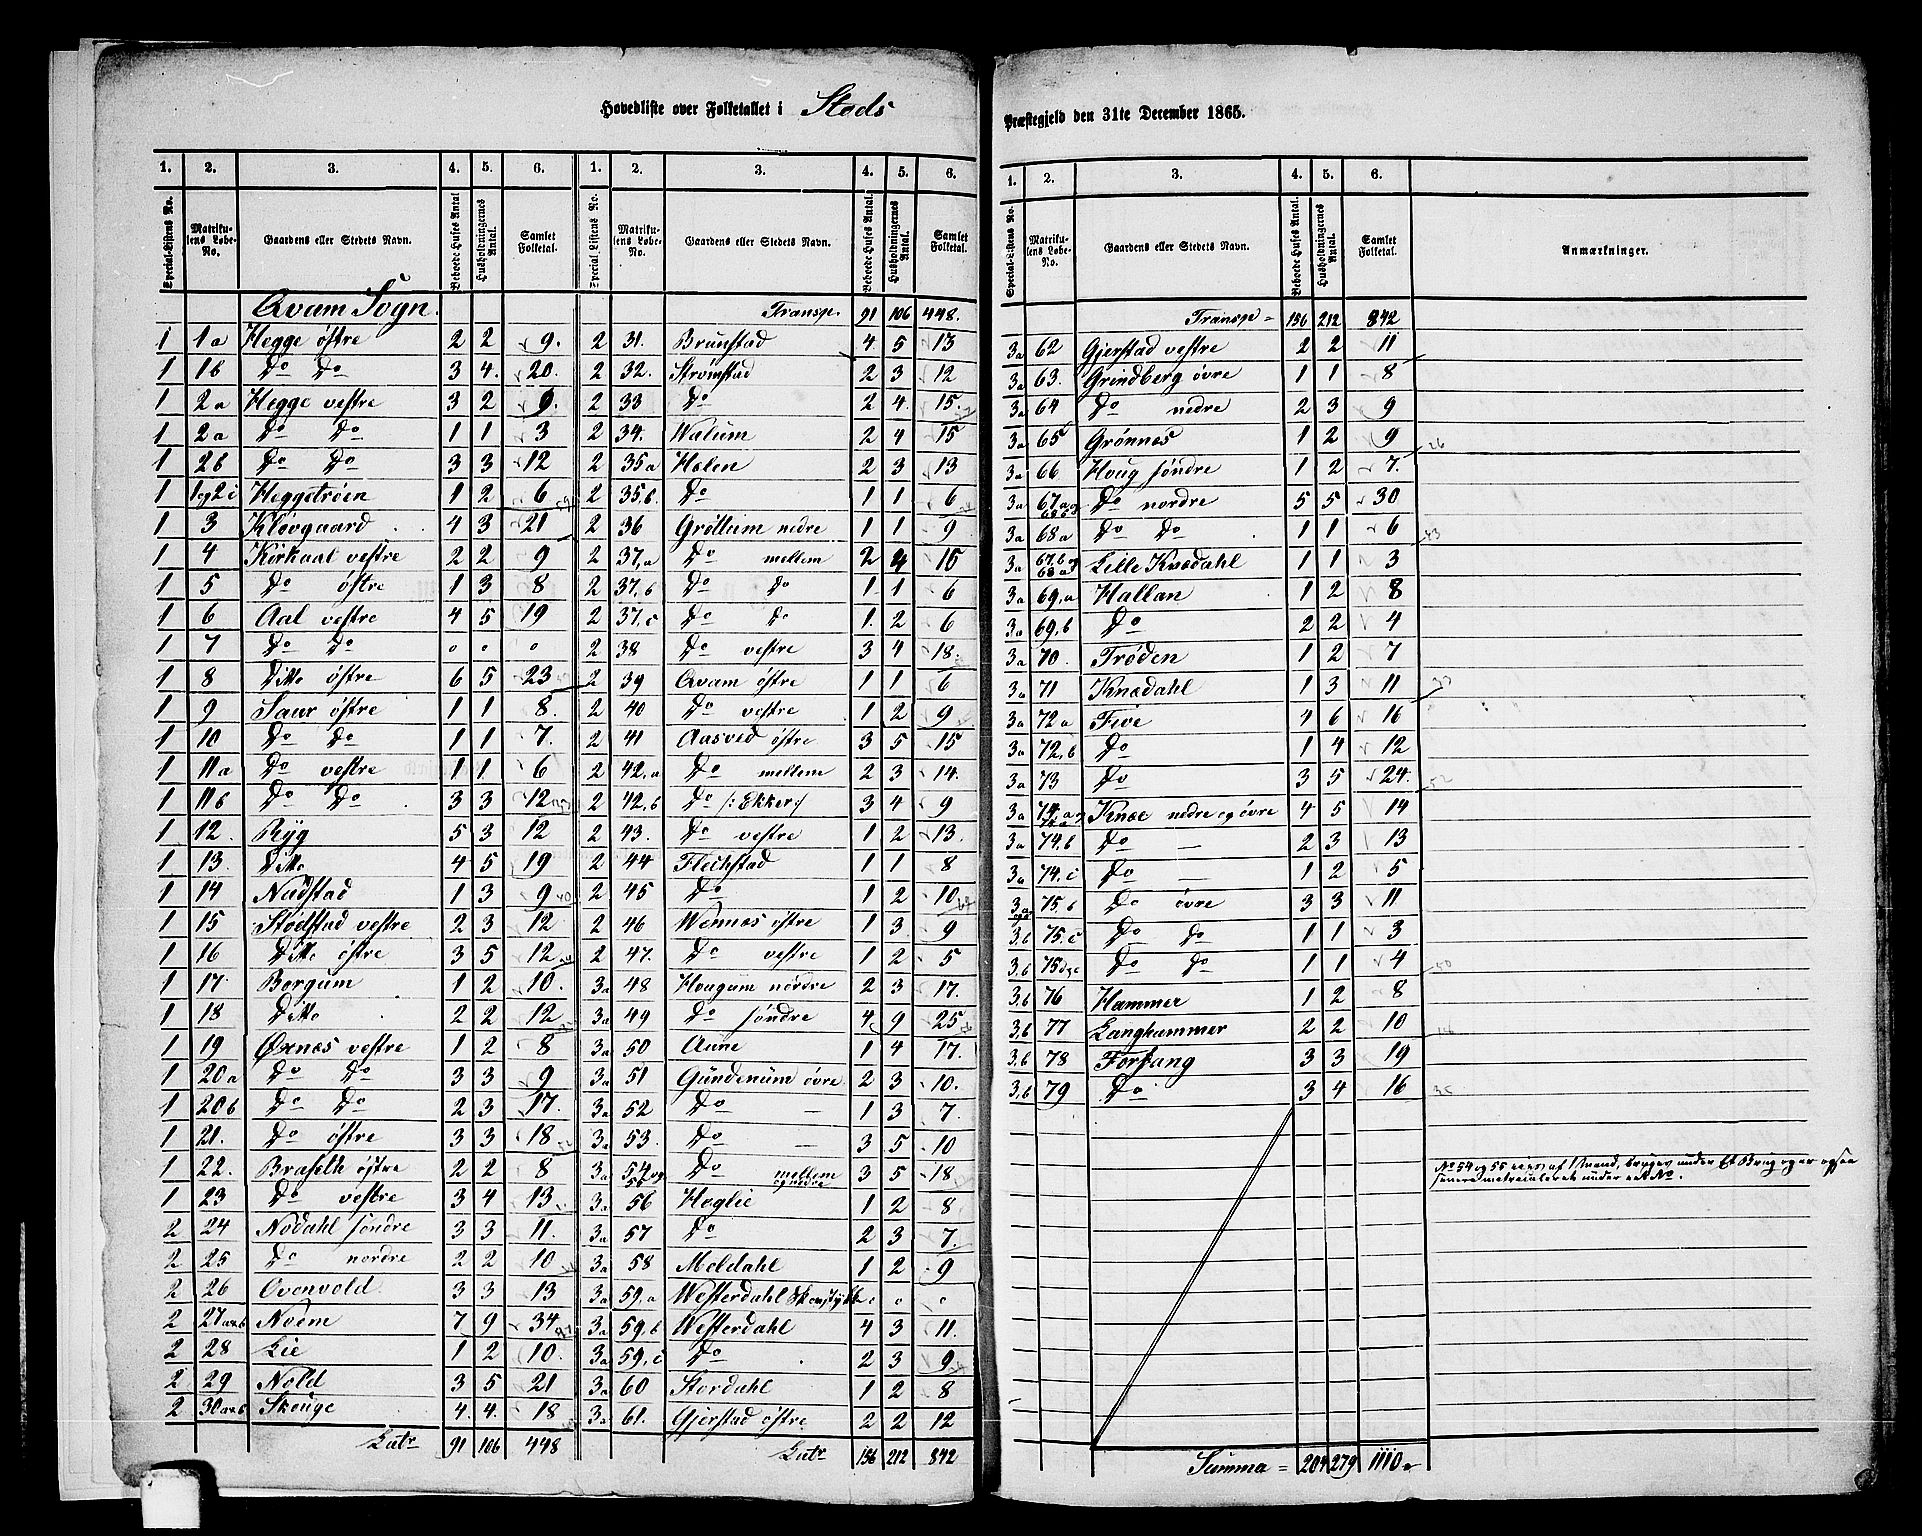 Hovedliste over Folketallet i Stods Præstegjeld den 31te December 1865.
1. 2. 3. 4. 5. 6. 1. 2. 3. 4. 5. 6.
Special-Listens No. Matrikulens Løbe-No. Gaardens eller Stedets Navn. Beboede Huses Antal Husholdningernes Antal. Samlet Folketal. Special Listens No. Matrikulens Løbe-No. Gaardens eller Stedets Navn. Beboede Huses Antal. Husholdningernes Antal. Samlet Folketal.
Qvam Sogn.
1 1a Hegge østre 2 2 9.
1 1b Do Do 3 4. 20.
1 2a Hegge vestre 3 2 9.
1 2a Do Do 1 1 3
1 2b Do Do 3 3 12
1 1 og 2c Heggetrøen 1 2 6
1 3 Kløvgaard 4 3 21
1 4 Kirkaal vestre 2 2 9
1 5 Do østre 1 3 8
1 6 Aal vestre 4 5 19
1 7 Do Do " " "
1 8 Ditto østre 6 5 23
1 9 Saur østre 1 1 8.
1 10 Do Do 1 1 7.
1 11a Do vestre 1 1 6
1 11b Do Do 3 3 12
1 12. Ryg 5 3 12
1 13. Ditto 4 5 19
1 14 Nadstad 1 3 9
1 15 Stødstad vestre 2 3 12
1 16 Ditto østre 3 5 12
1 17. Borgum 1 2 10.
1 18 Ditto 2 2 12
1 19 Øxnes vestre 1 2 8
1 20a Do Do 3 3 9
1 20b Do Do 2 3 17.
1 21. Do østre 3 3 18
1 22. Braseth østre 2 2 8
1 23 Do vestre 3 4 13.
2 24 Nødahl søndre 3 3 11.
2 25 Do nordre 2 2 10.
2 26 Ovenvold 3 3 13
2 27a&b Noem 7 9 34
2 28 Lie 1 2 10.
2 29 Nold 3 5 21
2 30a&b Skouge 4. 4. 18
Latr 91 106 448
Transp. 91 106 448.
2 31. Brunstad 4 5 13
2 32. Strømstad 2 3 12
2 33 Do 2 4. 15.
2 34. Walum 2 4 15
2 35a Hælen 2 3 13
2 35.b Do 1 1 6
2 36 Grøttum nedre 1 1 9
2 37.a Do mellem 2 4 15
2 37.b Do Do 1 1 6
2 37.c Do Do 1. 2 6
2 38 Do vestre 3 4 18.
2 39 Qvam østre 1 1 6
2 40 Do vestre 1 2 9
2 41 Aasved østre 3 5 15
2 42.a Do mellem 2 3 14.
2 42.b Do /:Ekker:/ 3 4 9
2 43. Do vestre 1 2 13.
2 44 Flekstad 1 1 8
2 45 Do 1 2 10.
2 46 Wennes østre 1 3. 9
2 47. Do vestre 1 2 5
3a 48 Hougum nordre 2 3 17.
3a 49 Do søndre 4 9 25
3a 50 Aune 1 4 17.
3a 51 Gundenum øvre 2 3 10.
3a 52 Do — 1 3 7.
3a 53. Do — 3 5 10
3a 54 og 55 Do mellem og nedre 3 5 18
3a 56 Høglie 1 2 8
3a 57 Do 2 3 7.
3a 58 Moldahl 1 2 9
3a 59.a Westerdahl " " "
3a 59.b Westerdahl 4 3 11.
3a 59.c Do 2 3 9
3a 60 Stordahl 1 2 8
3a 61. Gjerstad østre 2 2 12
Latr 156 212 842
1. 2. 3. 4. 5. 6.
Special-Listens No. Matrikulens Løbe-No. Gaardens eller Stedets Navn. Beboede Huses Antal. Husholdningernes Antal. Samlet Folketal. Anmærkninger.
Transp = 156 212 842
3a 62 Gjerstad vestre 2 2 11
3a 63. Grindberg øvre 1 1 8
3a 64 Do nedre 2 3 9
3a 65 Grønnes 1 2 9
3a 66 Houg søndre 1 2 7.
3a Do nordre 5 5 30
3a 68a Do Do 1 1 6
3a Lille Knædahl 1 1 3
3a 69.a Hallan 1 2 8
3a 69.b Do 2 2 4
3a 70. Trøden 1 2 7
3a 71 Knædahl 1 3 11
3a 72a Five 4 6 16
3a 72.b Do 1 4 12
3a 73 Do 3 5 24.
3a Knæe nedre og øvre 4 5 14
3a 74.b Do — 2 3 13
3a 74.c Do — 1 2 5
3a 75.b Do øvre 3 3 11
3.b 75.c Do Do 1 1 3
3.b Do Do 1 1 4
3.b 76 Hammer 1 2 8
3.b 77 Langhammer 2 2 10
3.b 78 Forfang 3 3 19
3.b 79 Do 3 4 16
No 54 og 55 eies af 1 Mand, bruges under Et Brug og er ogsaa
senere matriculerede under eet No.
Summa = 204 279 1110